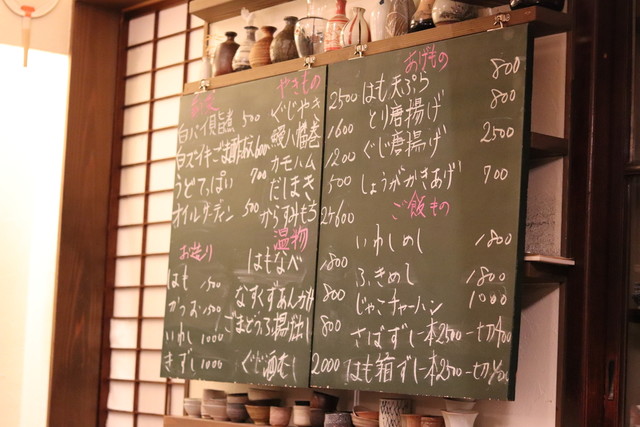 白バイ貝旨煮 500
白ズイキごま酢あえ 600
うどてっぱい 700
オイルサーディン 500
お造り
はも 1500
かつお 1500
いわし 1000
きずし 1000
やきもの
ぐじやき 2500
鰻八幡巻 1600
カモハム 1200
だしまき 500
からすみもち 2ケ600
温物
はもなべ 1800
なすくずあんかけ 800
ごまどうふ揚げ出し 800
ぐじ酒むし 2000
あげもの
はも天ぷら 800
とり唐揚げ 800
ぐじ唐揚げ 2500
しょうがかきあげ 700
ご飯もの
いわしめし 1800
ふきめし 1800
じゃこチャーハン 1000
さばずし 一本2500 一切400
はも箱ずし 一本2500 一切